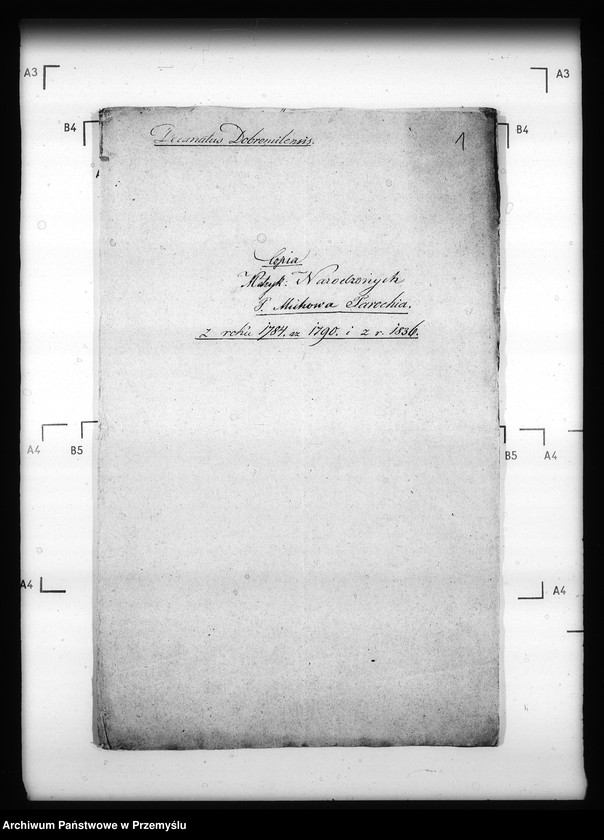 A3 A3
B4 B4
Decanatus Dobromilensis. 1
Copia
Metryk: Narodzonych
P. Michowa Parochia.
z roku 1784. az 1790. i z r. 1836.
A4 B5 B5 A4
A4 A4
Archiwum Państwowe w Przemyślu